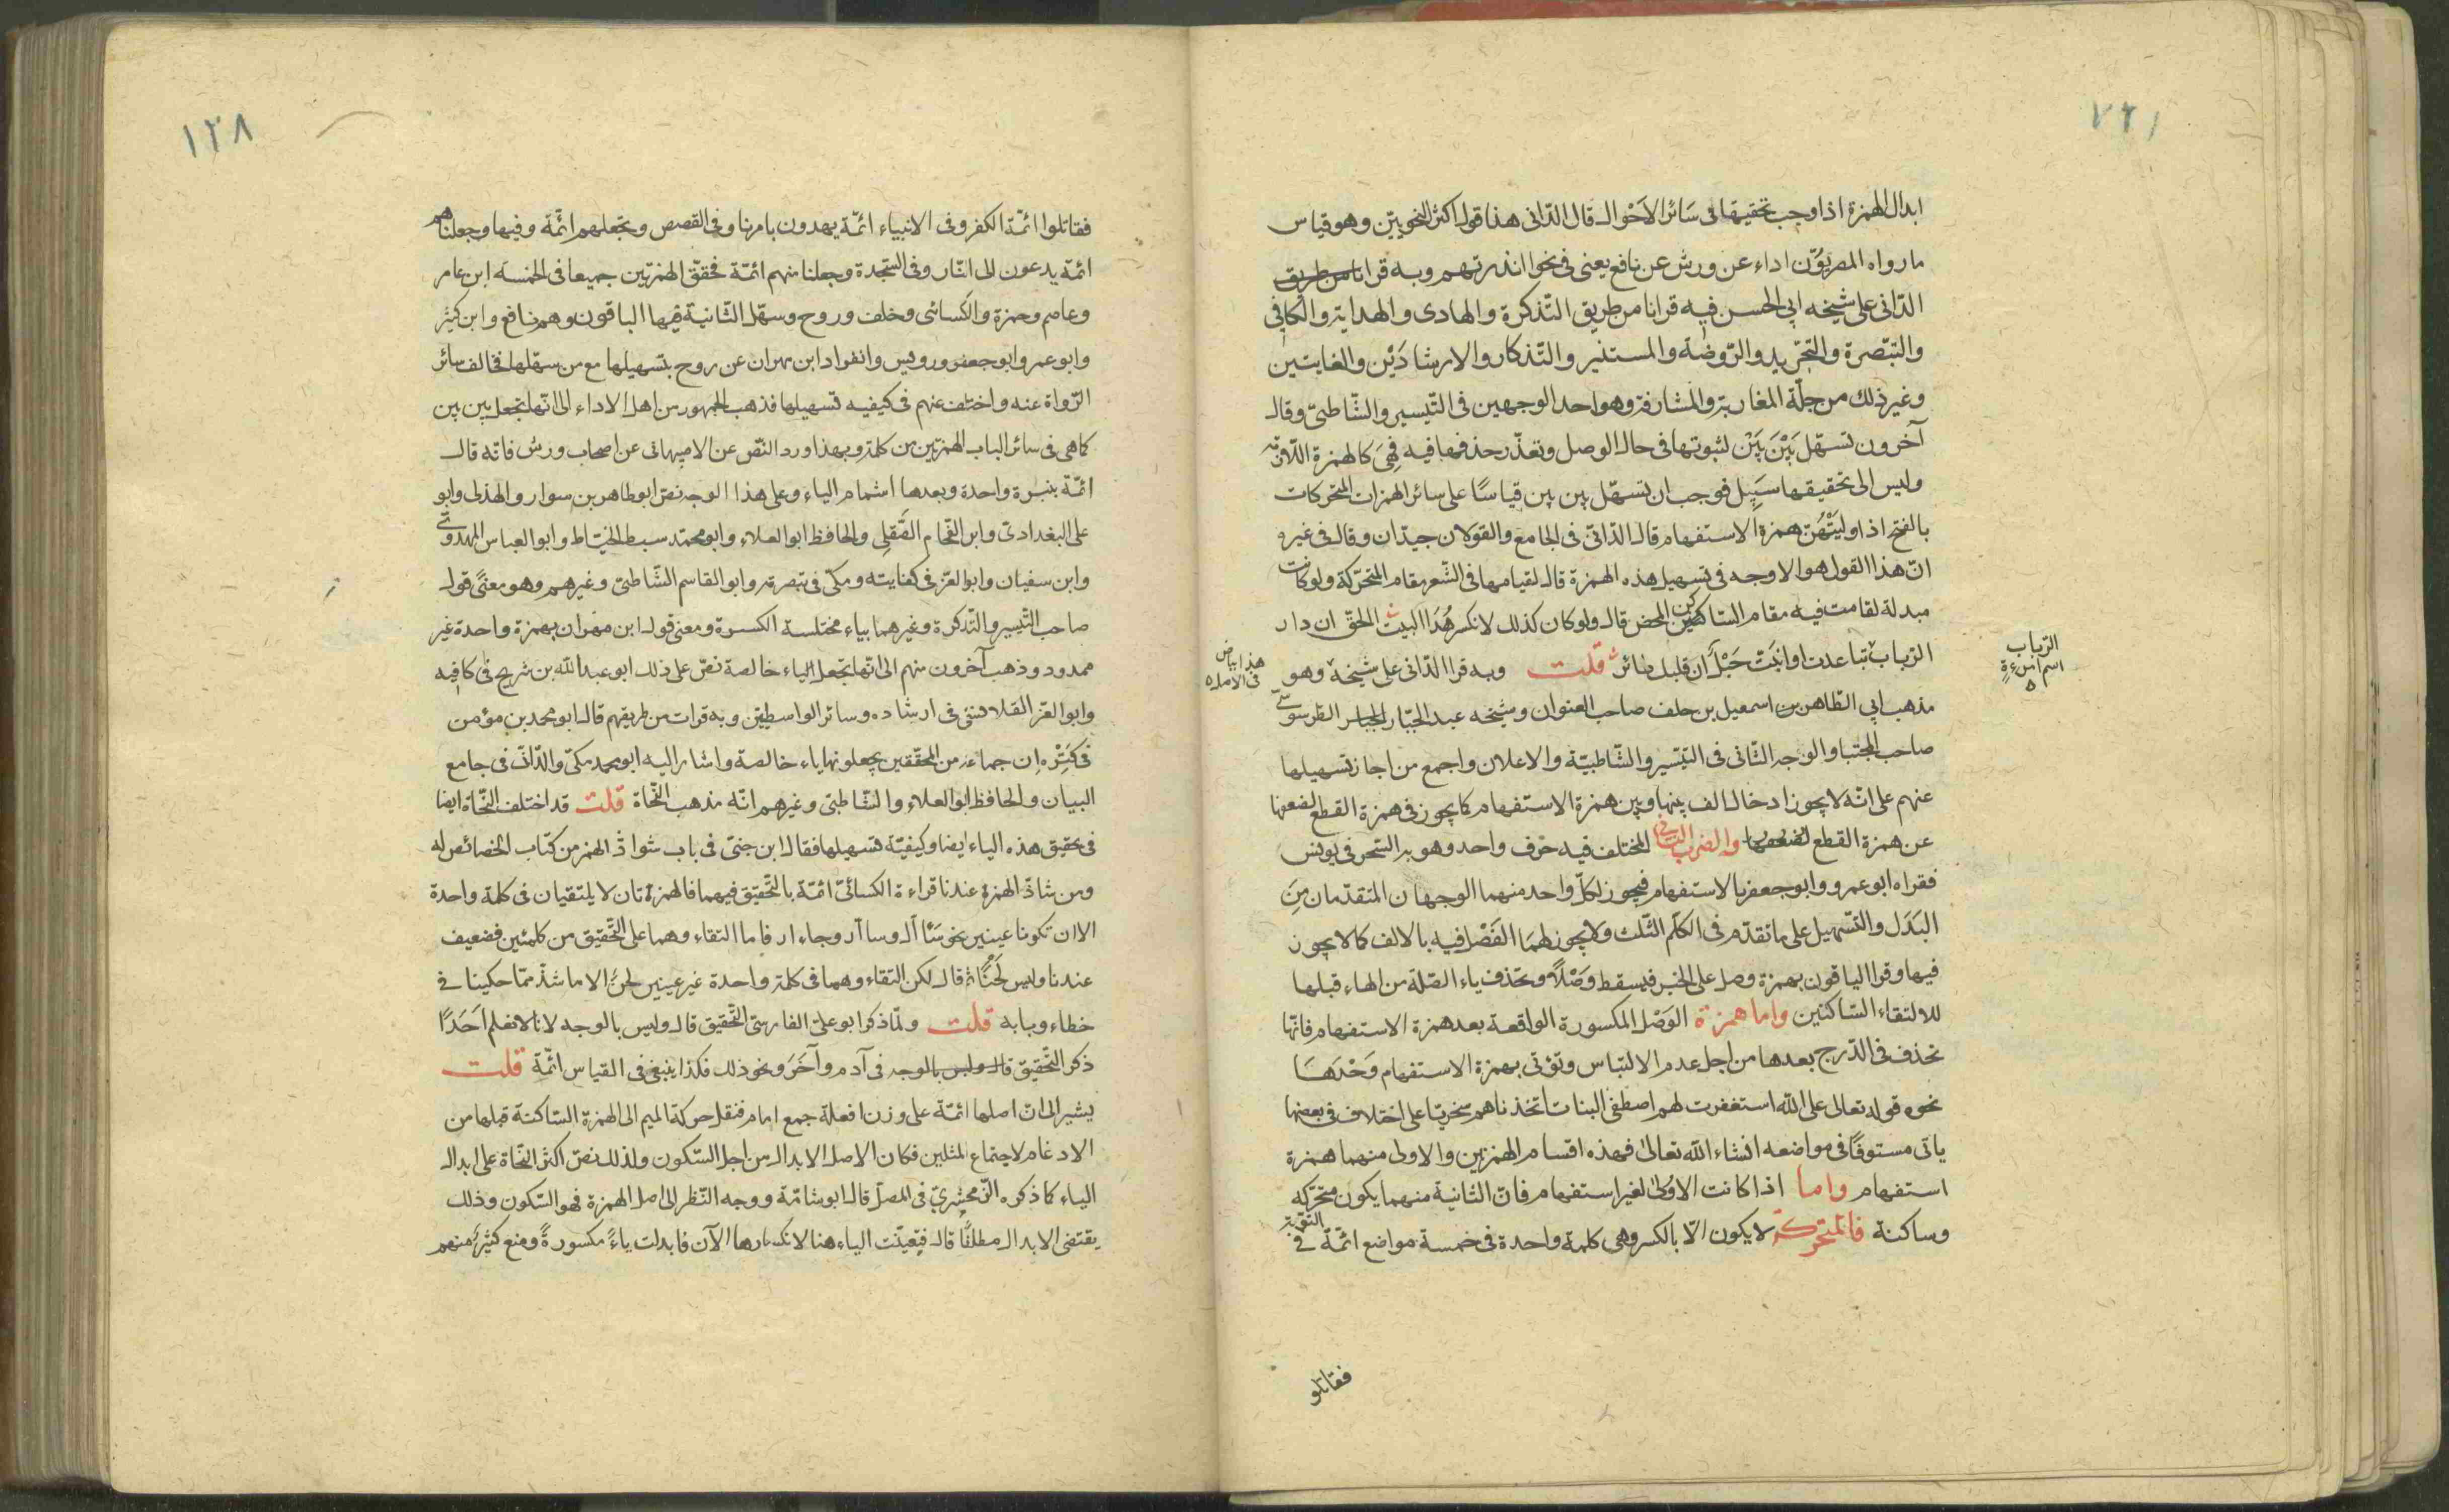 ١٢٧
ابدال الهمزة اذا وجب تحقيقها فى سَائر الاَحْوال قال الدّانى هذا قول اكثر النحويّين وهو قياس
ما رواه المصريّون اداء عن ورش عن نافع يعنى فى نحوا انذرتهم وبه قرانا من طريق
الدّانى على شيخه ابى الحسن فيه قرانا من طريق التّذكرة والهادى والهداية والكافى
والتبّصرة والتّجريد والرّوضة والمستنير والتّذكار والارشادَيْن والغايتين
وغير ذلك من جلّة المغاربة والمشارقة وهو احد الوجهين فى التّيسير والشّاطبىّ وقال
آخرون تسهّل بَيْنَ بَيْن لثبوتها فى حال الوصل وتعذّر حذفها فيه فهِىَ كالهمزة اللّازمة
وليس الى تخفيفها سَبِيل فوجب ان تسهّل بين بين قياسًا على سائر الهمزات المتحركات
بالفتح اذا وليَتْهُنّ همزة الاستفهام قال الدّانى فى الجامع والقولان جيدّان وقال فى غيره
انّ هذا القول هو الاوجه فى تسهيل هذه الهمزة قال لقيامها فى الشّعر مقام المتحرّكة ولو كانت
مبدلة لقامت فيه مقام الساكن المحض قال ولو كان كذلك لانكسر هُذَا البيت الحقّ ان دار
الرّباب تباعدت او انبتّ حَبْلٌ ان قلبك طائر قلت وبه قرا الدّانى على شيخه وهو
الرّباب
اسم امرءةٍ
هذا بياض
فى الامله
مذهب ابى الطّاهر بن اسمعيل بن خلف صاحب العنوان وشيخه عبد الجبّار الطرسوسىّ
صاحب المجتبا والوجه الثّانى فى التيّسير والشّاطبيّة والاعلان واجمع من اجاز تسهيلها
عنهم على انّه لا يجوز ادخال الف بينها وبين همزة الاستفهام كما يجوز فى همزة القطع لضعفها
عن همزة القطع والضرب الثانى المختلف فيه حرْف واحد وهو به السّحر فى يونس
فقراه ابو عمرو وابو جعفر بالاستفهام فيجوز لكلّ واحد منهما الوجهان المتقدّمان مِنَ
البَدَل والتسّهيل على ما تقدّم فى الكلم الثّلث ولا يجوز لهمَا الفَصْل فيه بالالف كما لا يجوز
فيها وقرا الباقون بهمزة وصل على الخبر فيسقط وَصْلاً وتحذف ياء الصّلة من الهاء قبلها
للالتقاء السّاكنين واما همزة الوَصْل المكسورة الواقعة بعد همزة الاستفهام فانّها
تحذف فى الدّرج بعدها من اجل عدم الالتباس وتؤتى بهمزة الاستفهام وَحْدَهَا
نحوه قوله تعالى على الله استغفرت لهم اصطفى البنات اتخذناهم سخريّا على اختلاف فى بعضها
ياتى مستوفًا فى مواضعه انشاء الله تعالىٰ فهذه اقسام الهمزتين والاولى منهما همزة
استفهام واما اذا كانت الاولىٰ لغير استفهام فانّ الثانية منهما يكون متحرّكه
وساكنة فالمتحركة لا يكون الّا بالكسر وهى كلمة واحدة فى خمسة مواضع ائمّة فى التّوبة
فقاتلو
١٢٨
فقاتلوا ائمّة الكفر وفى الانبياء ائمّة يهدون بامرنا وفى القصص ونجعلهم ائمّة وفيها وجعلناهم
ائمّة يدعون الى النّار وفى السّجدة وجعلنا منهم ائمّة فحقّق الهمزتين جميعا فى الخمسة ابن عامر
وعاصم وحمزة والكسائى وخلف وروح وسهّل الثّانية فيها الباقون وهم نافع وابن كثير
وابو عمرو وابو جعفر ورويس وانفراد ابن مهران عن روح بتسهيلها مع من سهّلها فخالف سائر
الرّواة عنه واختلف عنهم فى كيفيه تسهيلها فذهب الجمهور من اهل الاداء الى انّها تجعل بين بين
كما هى فى سائر الباب الهمزتين من كلمة وبهذا ورد النّص عن الاصبهانى عن اصحاب ورش فانّه قال
ائمّة بنبرة واحدة وبعدها اشمام الياء وعلى هذا الوجه نصّ ابو طاهر بن سوار والهذلى وابو
على البغدادىّ وابن الفّحام الصّقلى والحافظ ابو العلاء وابو محمّد سبط الخيّاط وابو العباس المهدوىّ
وابن سفيان وابو العزّ فى كفايته ومكّى فى تبصرته وابو القاسم الشّاطبىّ وغيرهم وهو معنًى قول
صاحب التّيسير والتّذكرة وغيرهما بياء مختلسة الكسرة ومعنى قول ابن مهران بهمزة واحدة غير
ممدود وذهب آخرون منهم الى انّها تجعل الياء خالصة نصّ على ذلك ابو عبد اللّه بن شريح فى كافيه
وابو العّز القلانسّى فى ارشاده وسائر الواسطيّين وبه قرات من طريقهم قال ابو محمد بن مؤمن
فى كنزه ان جماعة من المحقّقين يجعلونها ياء خالصة واشار اليه ابو محمد مكىّ والدّانى فى جامع
البيان والحافظ ابو العلاء والشّاطبىّ وغيرهم انّه مذهب النّحاة قلت قد اختلف النّحاة ايضا
فى تحقيق هذه الياء ايضا وكيفيّة تسهيلها فقال ابن جنىّ فى باب شواذّ الهمز من كتاب الخصائص له
ومن شاذّ الهمزة عندنا قراءة الكسائىّ ائمّة بالتّحقيق فيهما فالهمزتان لا يلتقيان فى كلمة واحدة
الا ان تكونا عينين نحو سَئآل وسأآر وجاءار فاما التقاءوهما على التّحقيق من كلمتين فضعيف
عندنا وليس لَحْنًا ثم قال لكن التقاءوهما فى كلمة واحدة غير عينين لحنٌ الا ما شذّ ممّا حكينا فى
خطاء وبابه قلت ولمّا ذكر ابو علىّ الفارسىّ التّحقيق قال وليس بالوجه لانا لا نعلم اَحَدًا
ذكر التّحقيق بالوجه فى آدم وآخَرَ ونحو ذلك فكذا ينبغى فى القياس ائمّة قلت
يشير الى انّ اصلها ائمّة على وزن افعلة جمع امام فنقل حركة الميم الى الهمزة السّاكنة قبلها من
الادغام لاجتماع المثلين فكان الاصل الابدال من اجل السّكون ولذلك نصّ اكثر النحّاة على ابدال
الياء كما ذكره الزّمخشرىّ فى المفصّل قال ابو شامّة ووجه النّظر الى اصل الهمزة فهو السّكون وذلك
يقتضى الابدال مطلقًا قال فيتعينّت الياء هنا لانكسارها الآن فابدلت ياءً مكسورةً ومنع كثيرٌ منهم